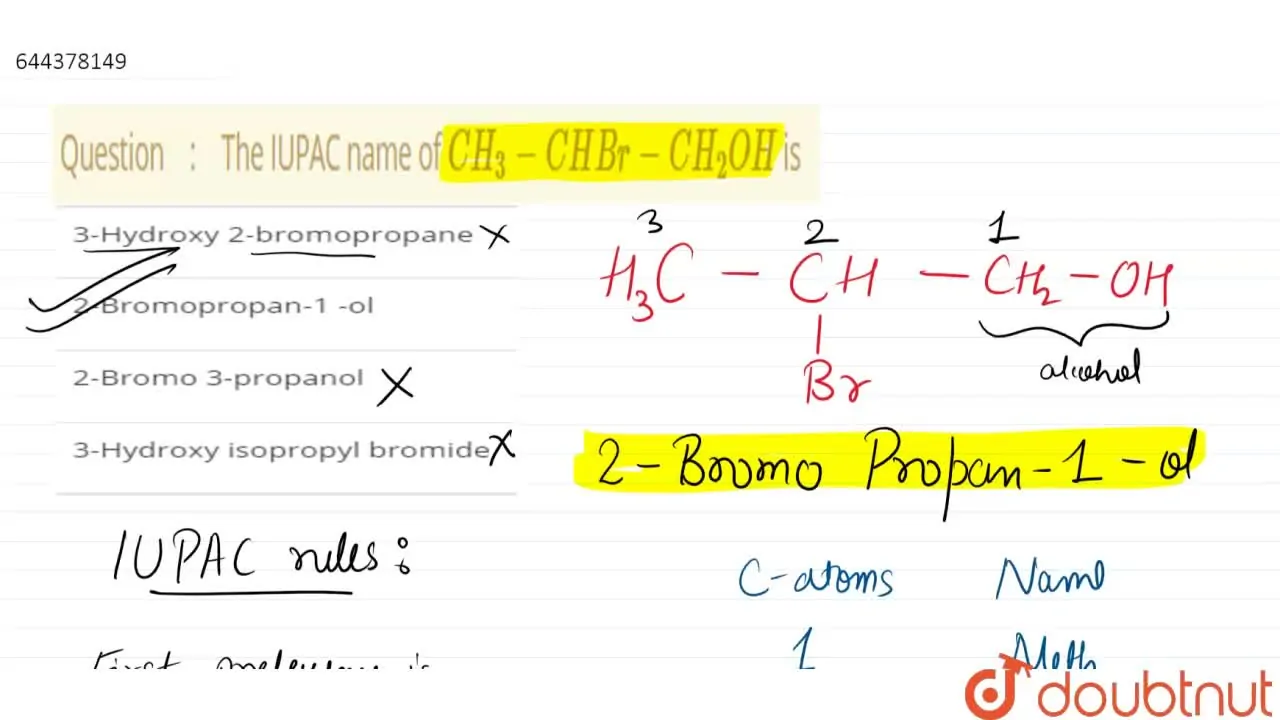 644378149
Question : The IUPAC name of CH₃ − CHBr − CH₂OH is
3-Hydroxy 2-bromopropane X
2-Bromopropan-1 -ol
2-Bromo 3-propanol X
3-Hydroxy isopropyl bromide X
3 2 1
H₃C − CH − CH₂ − OH
Br
alcohol
2-Bromo Propan-1-ol
IUPAC rules:
C-atoms Name
1 Meth
First
doubtnut